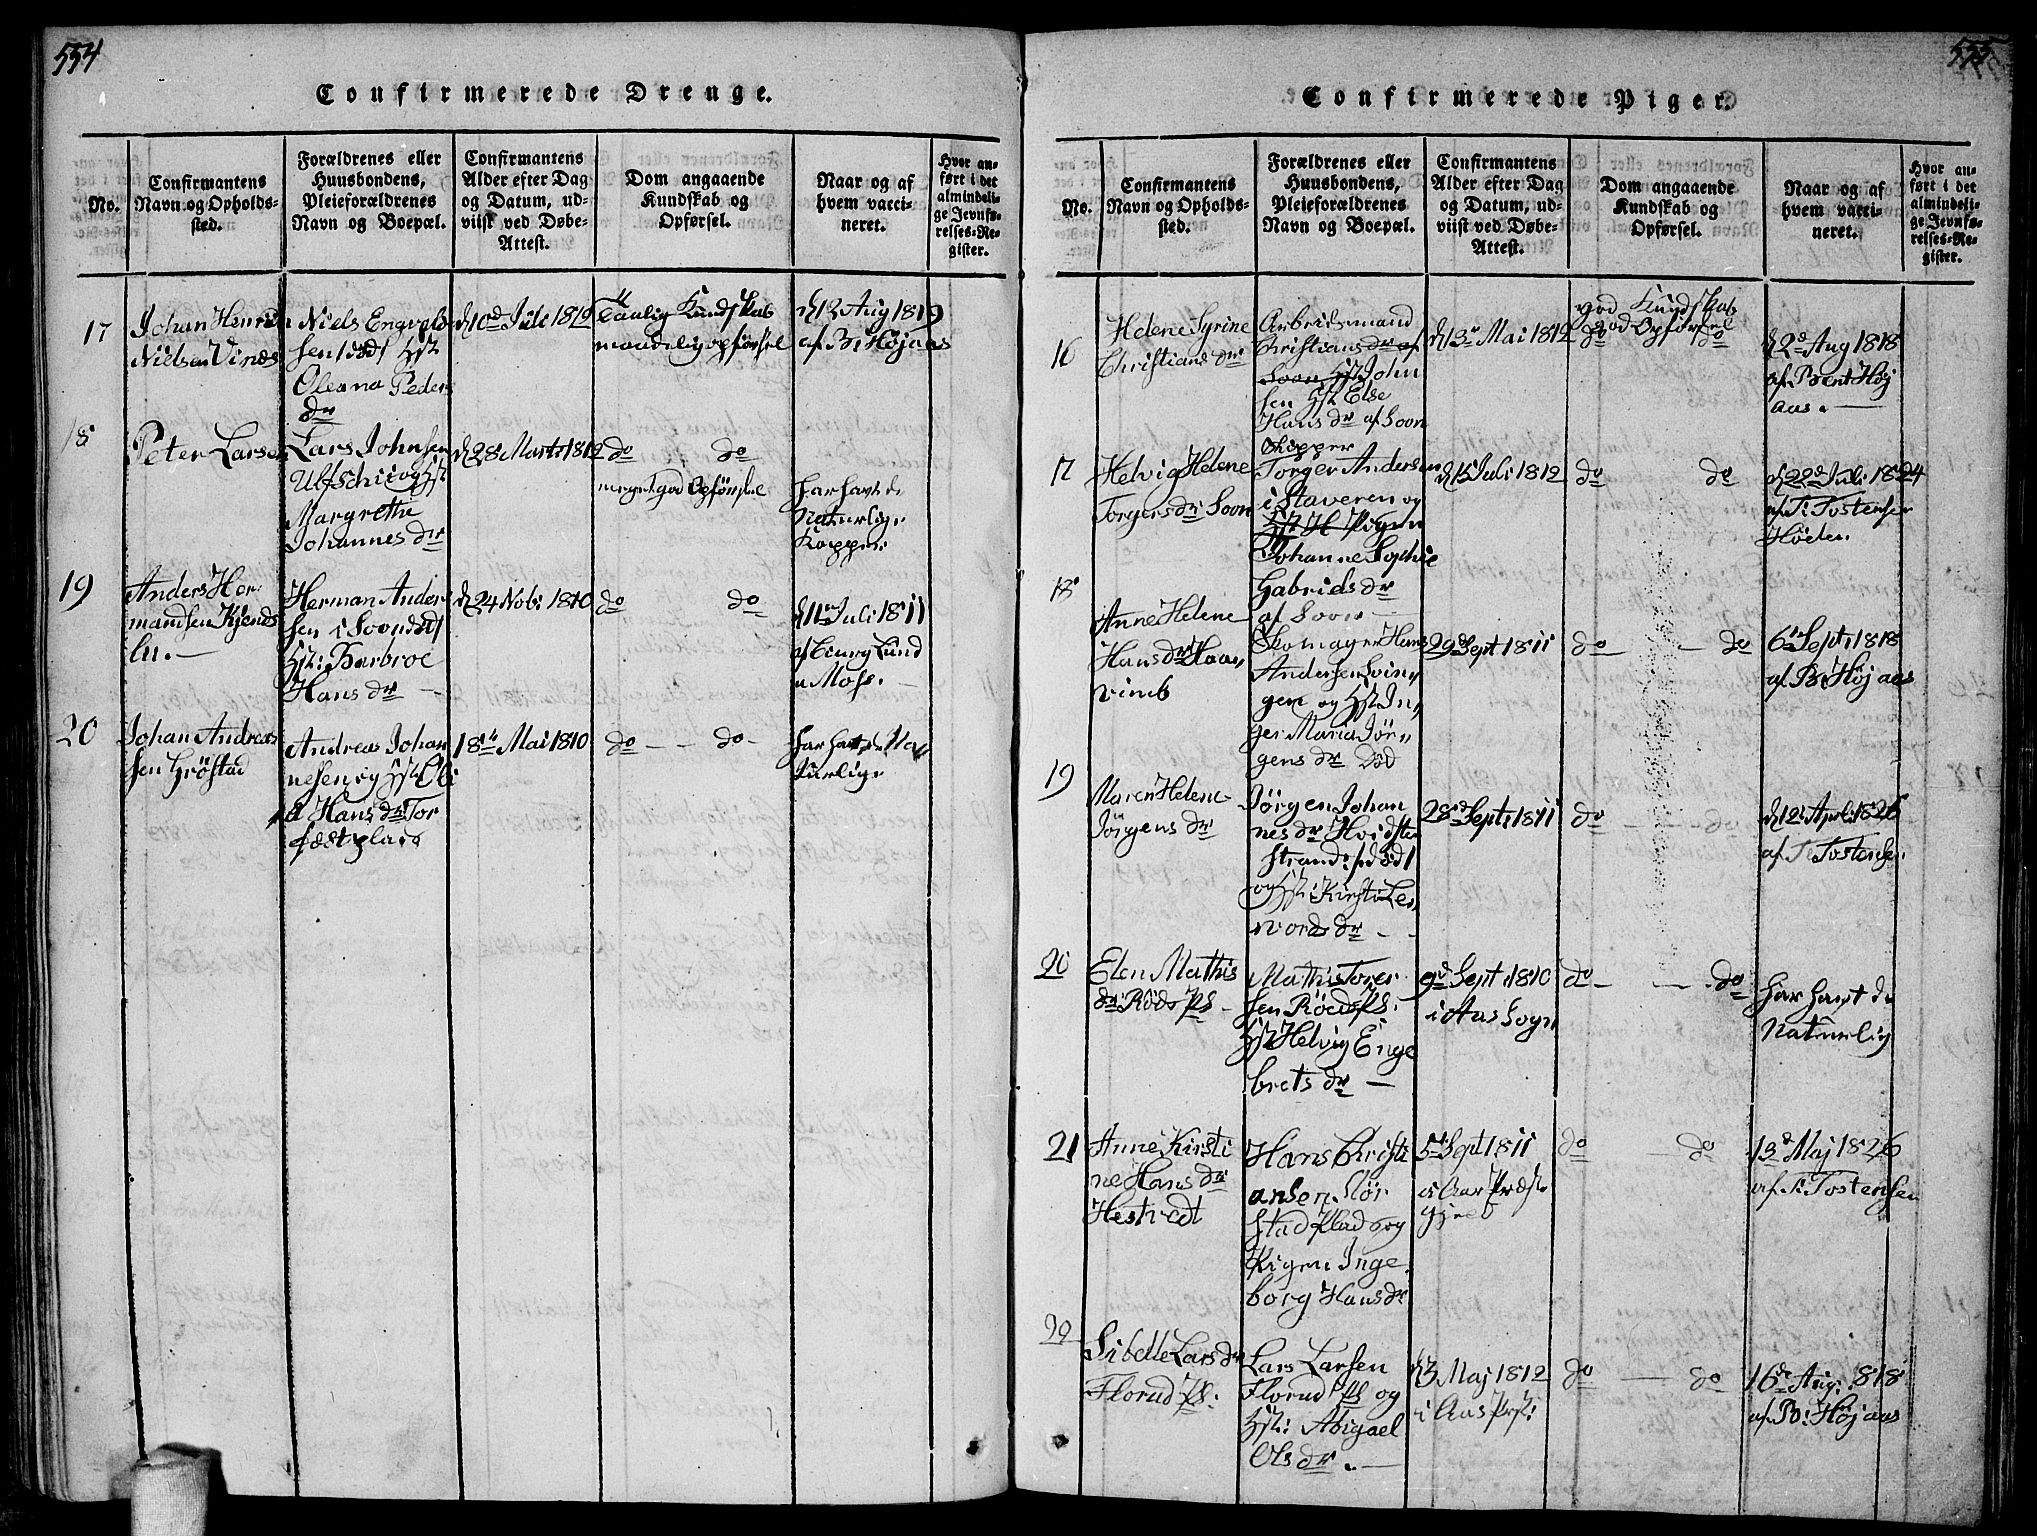 554
Confirmerede Drenge.
No.
Confirmantens Navn og Opholds-sted.
Forældrenes eller Huusbondens, Pleieforældrenes Navn og Boepæl.
Confirmantens Alder efter Dag og Datum, ud-viist ved Døbe-Attest.
Dom angaaende Kundskab og Opførsel.
Naar og af hvem vacci-neret.
Hvor an-ført i det almindeli-ge Jevnfø-relses-Re-gister.
17
Johan Henric
Nielsen Vinæs
Niels Engvald
sen
Oleana Peders
dr
d 10d Juli 1812
Taalig Kundskab
maadelig opførsel
d 12 Aug 1819
af B: Højaas
18
Peter Larsen
Lars Johnsen
og Hst
Margrethe
Johannes dr
d 28 Marts 1812
do do
meget god Opførsel
har havt de
Naturlige
Kopper
19
Anders Her
mandsen Kjends
lie.
Herman Anders
sen i Soon
Hst: Barbroe
Hans dr
d 24 Nob: 1810
do do
d 11te Juli 1811
af Lund
i Moss.
20
Johan Andreas
sen Grøstad
Andreas Johan
nesen og Hst Eli
Hans dr Tor
fæst plads
18de Mai 1810
do - - do -
har havt de Na
turlige
555
Confirmerede Piger.
No.
Confirmantens Navn og Opholds-sted.
Forældrenes eller Huusbondens, Pleieforældrenes Navn og Boepæl.
Confirmantens Alder efter Dag og Datum, ud-viist ved Døbe-Attest.
Dom angaaende Kundskab og Opførsel.
Naar og af hvem vacci-neret.
Hvor an-ført i det almindeli-ge Jevnfø-relses-Re-gister.
16
Helene Syrine
Christians dr
Arbeidsmand
Christians dr af
Soon Hst John
sen Hst Else
Hans dr af Soon
d 13de Mai 1812
god Kundskab
god Opførsel
do do
d 2d Aug 1818
af Bent Høj
aas.
17
Helvig Helene
Torgers dr Soon
Skipper
Torger Andersen
i Staveren og
Pigen
Johanne Sophie
Gabriels dr
af Soon
d 15 Juli 1812
do do
d 22d Juli 1824
af T: Tostensen
Høden
18
Anne Helene
Hans dr Haa
vimb
Skomager Hans
Andersen Svin
gen og Hst In
ger Maria Jør
gens dr Død
29d Sept 1811
do - - do
6te Sept: 1818
af B: Højaas
19
Maren Helene
Jørgens dr
Jørgen Johan
nes dr Hvidsten
strand
og Hst: Kirsti Le
vords dr
28d Sept: 1811
do - - do
d 12: April: 1826
af T: Tostensen
20
Elen Mathis
dr Røds Ps
Mathis Torer
sen Røeds Ps:
Hst Helvig Enge
brets dr
9d Sept: 1810
i Aas Sogn
do - - do
har havt de
Naturlig
21
Anne Kirsti
ne Hans dr
Hestvedt
Hans Christi
ansen Nør
stad Plads og
Pigen Inge
borg Hans dr
5te Sept 1811
i Aas Præste
gjeld
do - do
13d Maj 1826
af T: Tostensen
22
Sibelle Lars dr
Florud Ps:
Lars Larsen
Florud Ps og
Hst: Abigael
Ols dr.
d 3 Maj 1812
i Aas Prst:
do - do
16de Aug: 1818
af B: Højaas